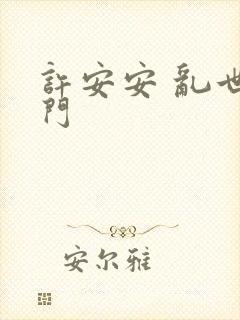 許安安 亂世
門
安尔雅